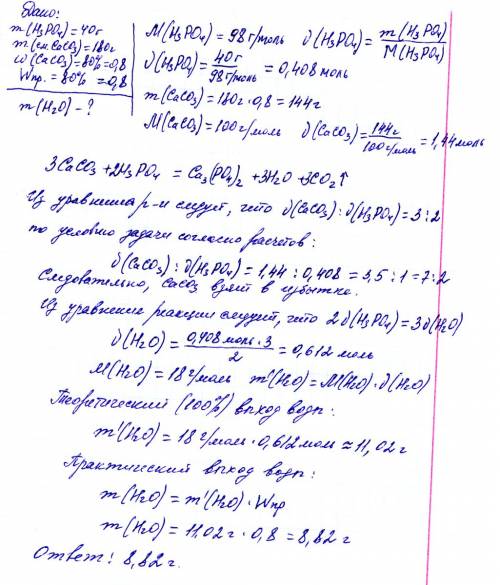 Дано:
m(H₃PO₄)=40г
m(см.CaCO₃)=180г
ω(CaCO₃)=80%=0,8
Wпр.=80%=0,8
m(H₂O)-?
M(H₃PO₄)=98г/моль ϑ(H₃PO₄)=m(H₃PO₄)/M(H₃PO₄)
ϑ(H₃PO₄)=40г/98г/моль=0,408 моль
m(CaCO₃)=180г·0,8=144г
M(CaCO₃)=100г/моль ϑ(CaCO₃)=144г/100г/моль=1,44моль
3CaCO₃+2H₃PO₄=Ca₃(PO₄)₂+3H₂O+3CO₂↑
Из уравнения р-и следует, что ϑ(CaCO₃):ϑ(H₃PO₄)=3:2
по условию задачи согласно расчетов:
ϑ(CaCO₃):ϑ(H₃PO₄)=1,44:0,408=3,5:1=7:2
Следовательно, CaCO₃ взят в избытке.
Из уравнение реакции следует, что 2ϑ(H₃PO₄)=3ϑ(H₂O)
ϑ(H₂O)=0,408моль·3/2=0,612 моль
M(H₂O)=18г/моль m'(H₂O)=M(H₂O)·ϑ(H₂O)
Теоретический (100%) выход воды:
m'(H₂O)=18г/моль·0,612моль≈11,02г
Практический выход воды:
m(H₂O)=m'(H₂O)·Wпр
m(H₂O)=11,02г·0,8=8,82г
Ответ: 8,82г.